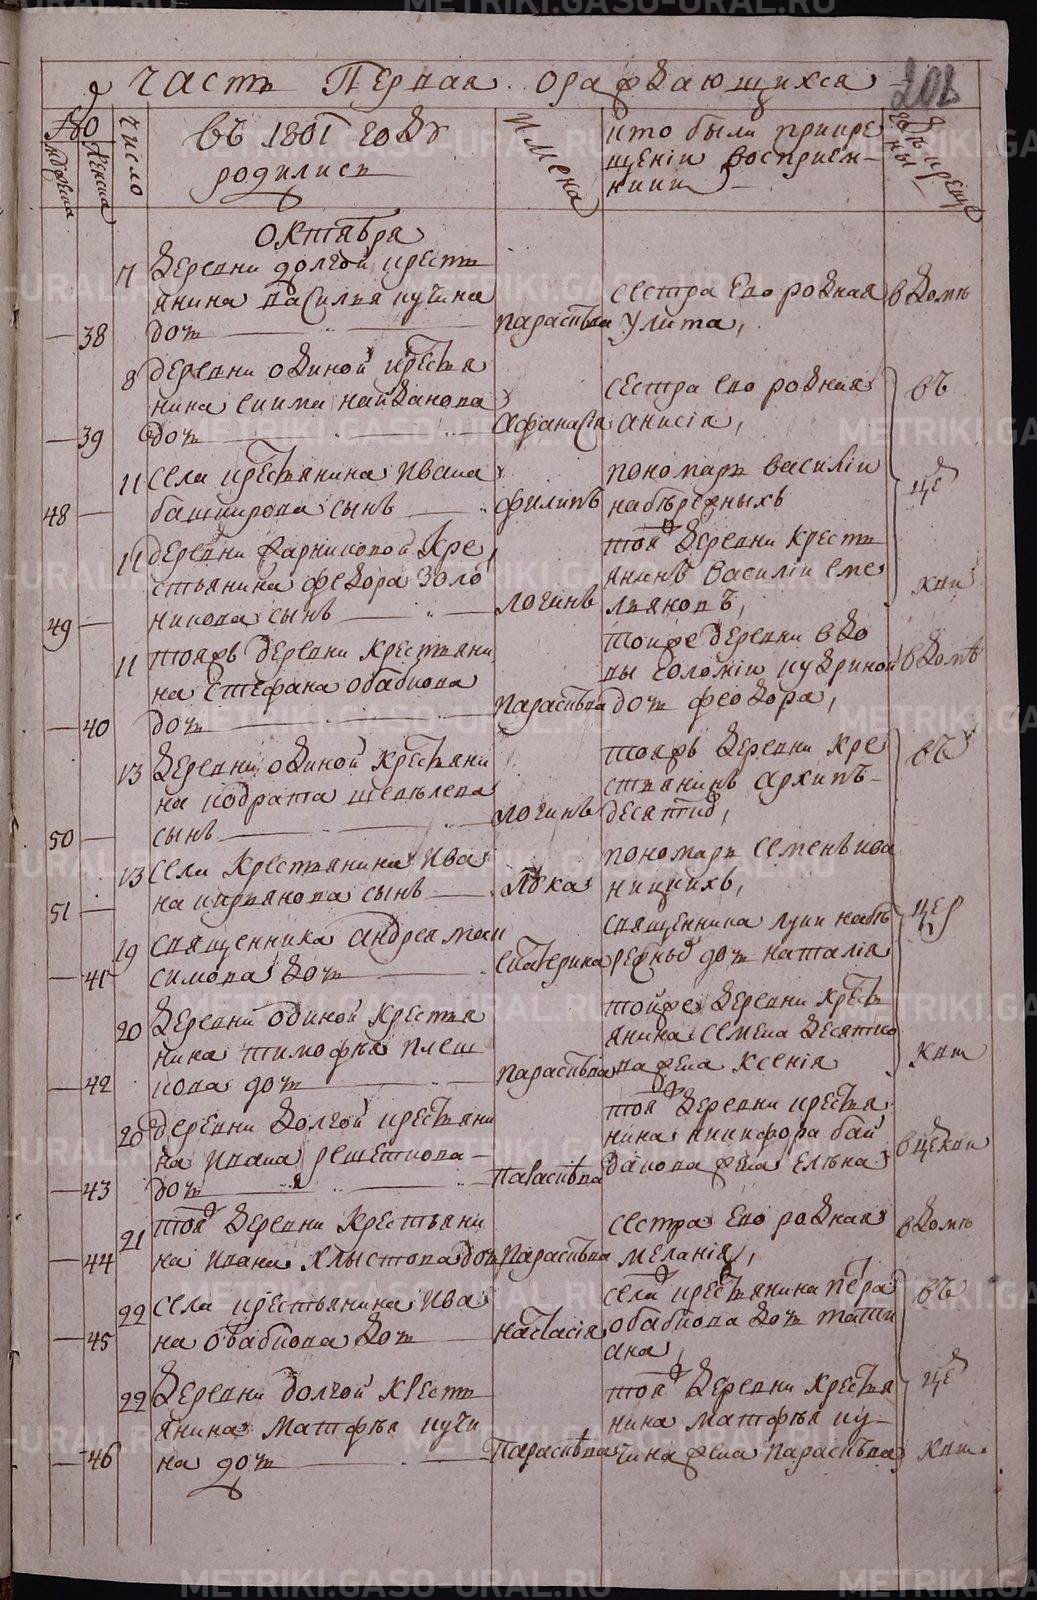 часть Первая о раждающихся
202
№
мужеска
женска
число
въ 1801 году
родились
имена
кто были при кре
щеніи восприем-
ники
гдѣ креще
ны
октября
7 деревни долгой крестъ
янина василья кучина
сестра его родная в домѣ
38 дочь параскѣва улита,
8 деревни одиной крестья
нина екима найданова
сестра его родная въ
39 дочь афанасія анисія,
11 села крестьянина ивана
башкирова сынъ филипъ
пономарь василіи
набѣрежныхъ
це
48
11 деревни
Кре
стьянина федора золо
никова сынъ логинъ
той деревни кресть
янинъ василіи еме
льяновъ,
кви
49
11 тояжъ деревни крестьяни
на стефана обабкова
тойже деревни вдо
вы соломіи кудриной в домѣ
40 дочь параскѣва дочь феодора,
13 деревни одиной крестьяни
на кодрата шевѣлева
сынъ логинъ
тояжъ деревни кре
стьянинъ архипъ
десятко,
въ
50
13 села крестьянина ива
на кирьянова сынъ лука
пономарь семенъ ива
ницкихъ,
51
19 священника андрея макси
симова дочь екатерина
священника луки набѣ
режныхъ дочь наталія
цер
41
20 деревни одиной крестья
нина тимофѣя плеш
кова дочь параскѣва
тойже деревни крестъ
янина семена десятко
ва жена ксенія
квѣ
42
20 деревни долгой крестьяни
на ивана решеткова
дочь параскѣва
той деревни крестья
нина никифора бай
данова жена елѣна
в цекви
43
21 той деревни крестьяни
на ивана хлыстова дочь параскѣва
сестра его родная
меланія,
в домѣ
44
22 села крестьянина ива
на обабкова дочь настасія
села крестьянина петра
обабкова дочь тати
ана,
въ
45
22 деревни долгой крестъ
янина матфѣя кучи
на дочь параскѣва
той деревни крестья
нина матфѣя ку-
чина жена параскѣва
це
квѣ
46
METRIKI.GASO-URAL.RU